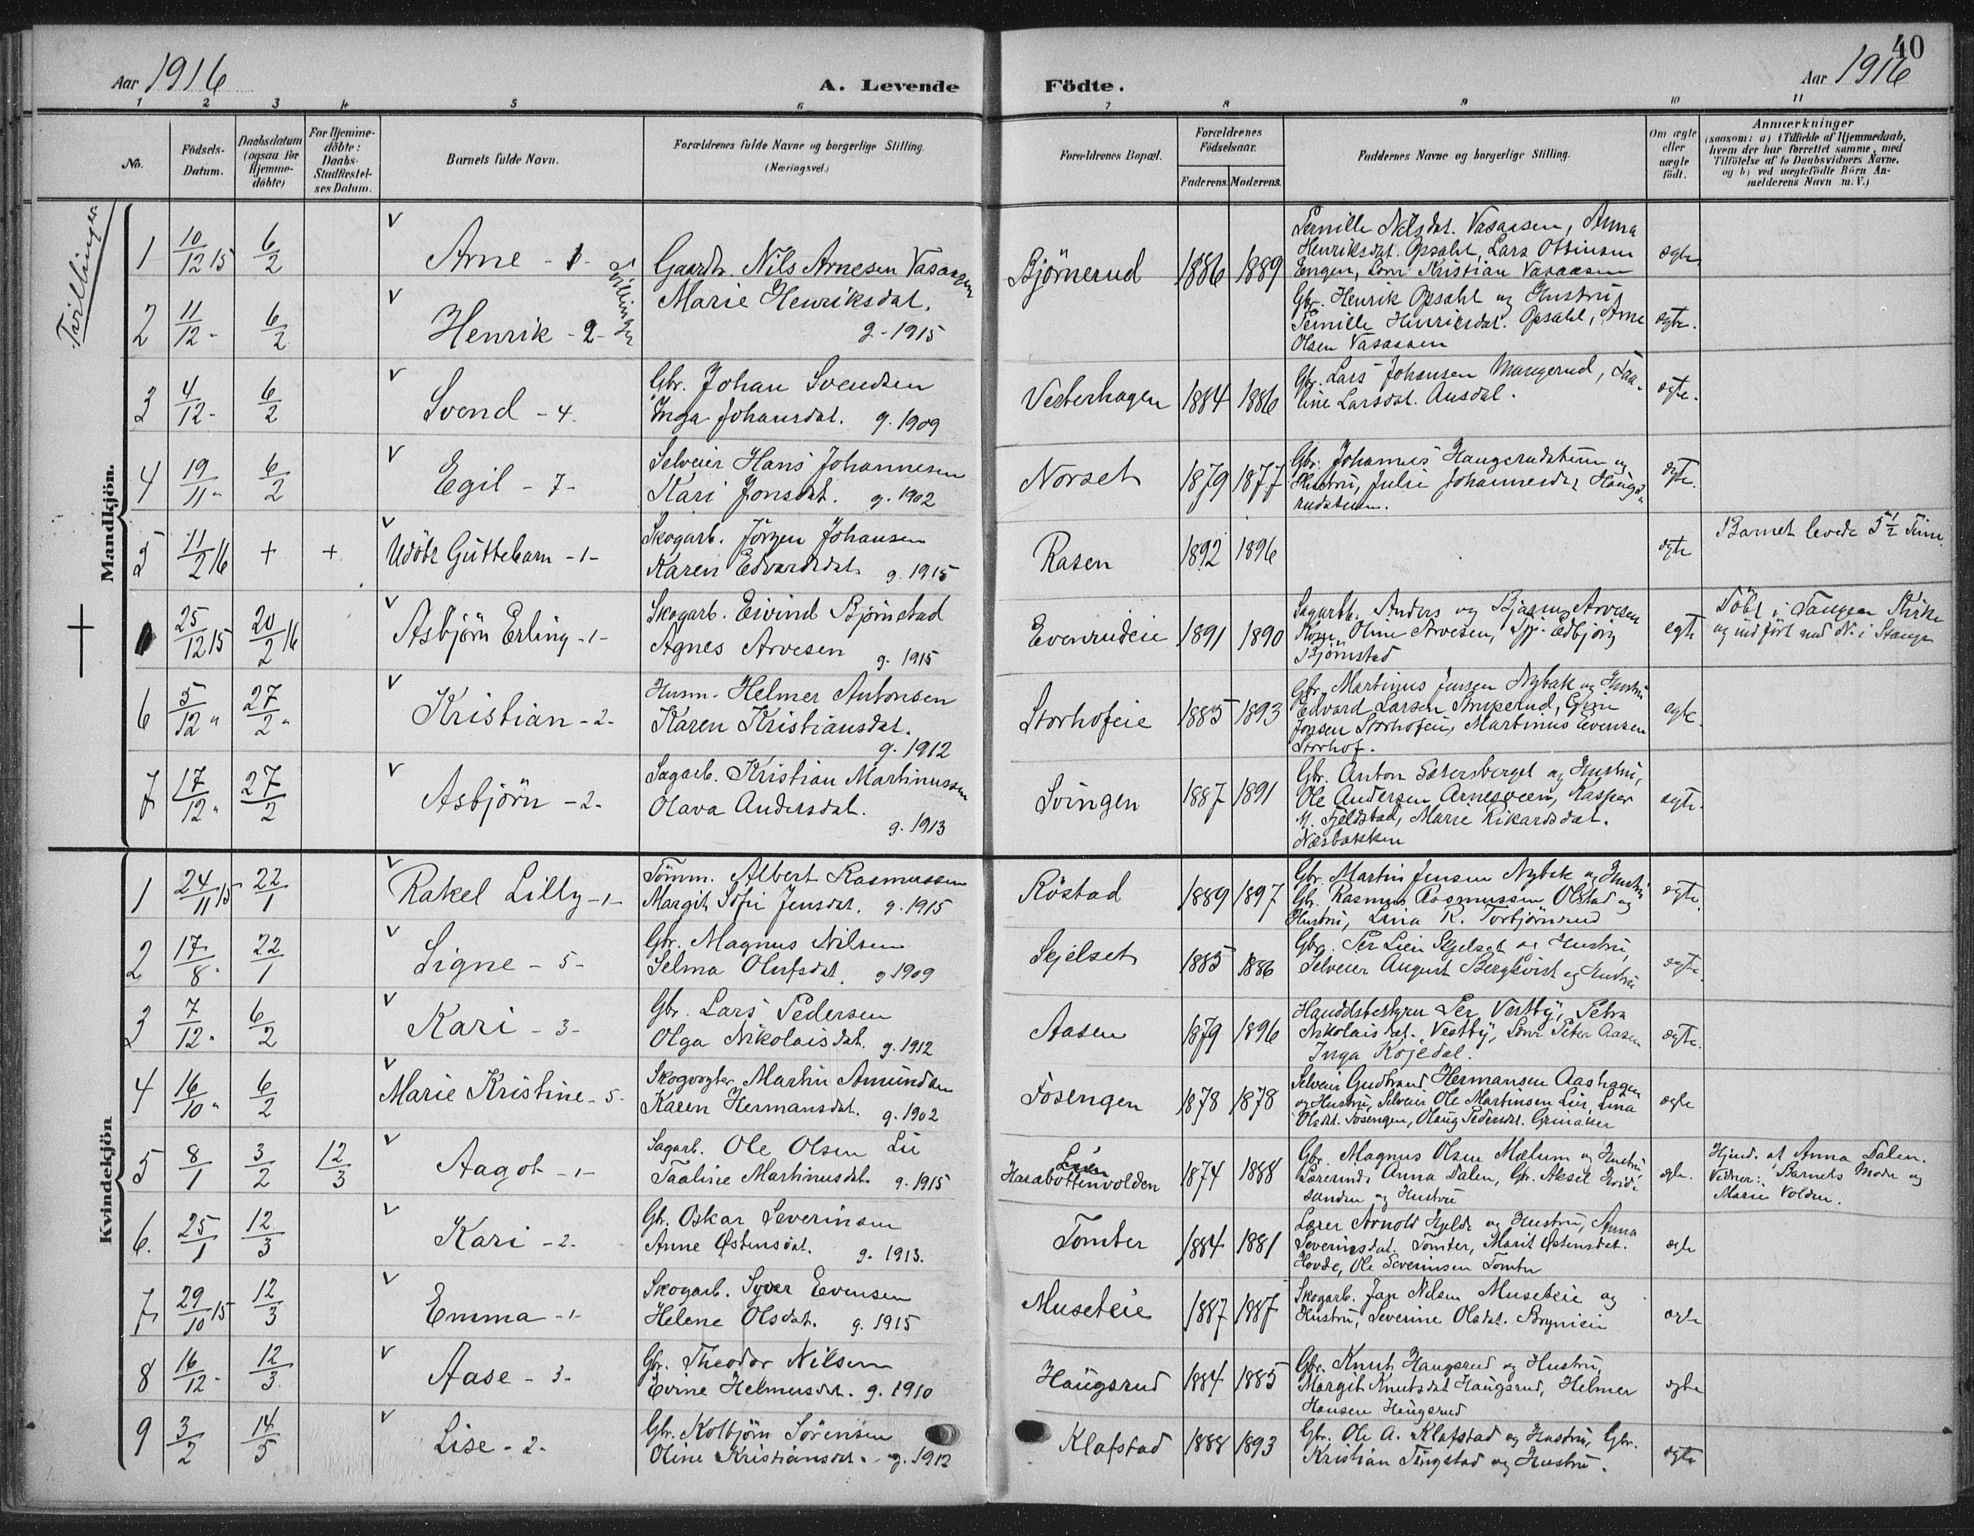 40
Aar 1916
A. Levende Födte.
Aar 1916
1 2 3 4 5 6 7 8 9 10 11
No.
Födsels-Datum.
Daabsdatum (ogsaa for Hjemme-döbte)
For Hjemme-döbte: Daabs-Stadfæstel-ses Datum.
Barnets fulde Navn.
Forældrenes fulde Navne og borgerlige Stilling. (Næringsvei.)
Forældrenes Bopæl.
Forældrenes Födselsaar.
Faderens. Moderens.
Faddernes Navne og borgerlige Stilling.
Om ægte eller uægte födt.
Anmærkninger
(saasom: a) i Tilfælde af Hjemmedaab, hvem der har forrettet samme, med Tilföielse af to Daabsvidners Navne, og b) ved uegtefödte Börn An-melderens Navn m. V.)
Tvillinger
Mandkjön.
1 10/12 15 6/2 Arne - 1- Gaardbr. Nils Arnesen Vasaasen Björnerud 1886 1889 Pernille Nilsdat. Vasaasen, Anna
Henriksdat. Opsahl, Lars Ottinsen
Engen, Lars Kristian Vasaasen ægte
Tvillinger
2 11/12 - 6/2 Henrik - 2- Marie Henriksdat. g. 1915 Gbr. Henrik Opsahl og Hustru
Pernille Henriksdat. Opsahl, Arne
Olsen Vasaasen ægte.
3 4/12 - 6/2 Svend - 4. Gbr. Johan Svendsen
Inga Johansdat. g. 1909 Vesterhagen 1884 1886 Gbr. Lars Johansen Mangerud, Taa-
line Larsdat. Ausdal. ægte.
4 19/11 - 6/2 Egil - 7- Selveier Hans Johannesen
Kari Jonsdat. g. 1902 Norset 1879 1877 Gbr. Johannes Haugsrudstuen og
Hustru, Julie Johannesdat. Haugs-
rudstuen. ægte.
5 11/2 16 + + Udöbt Guttebarn - 1- Skogarb. Jörgen Johansen
Karen Edvardsdat. g. 1915 Rasen 1892 1896 ægte Barnet levede 5 1/2 Time.
25/12 15 20/2 16 Asbjörn Erling - 1- Skogarb. Eivind Bjørnstad
Agnes Arvesen g. 1915 Evenrudeie 1891 1890 Sagarb. Anders og Bjarne Arvesen
Kone Oline Arvesen, Pji. Edbjörg
Bjørnstad egte Döbt i Tangen Kirke
og indført med Nr. i Stange
6 5/12 " 27/2 " Kristian - 2- Husm. Helmer Antonsen
Karen Kristiansdat. g. 1912 Storhofeie 1885 1893 Gbr. Martinus Jensen Nybak og Hustru
Edvard Larsen Stuperud, Gine
Jonsen Storhofeie, Martinus Evensen
Storhof. egte.
7 17/12 " 27/2 Asbjörn - 2- Sagarb. Kristian Martinussen
Olava Andersdat. g. 1913 Svingen 1887 1891 Gbr. Anton Sætersberget og Hustru,
Ole Andersen Arnesveen, Kasper
M. Fjeldstad, Marie Rikardsdat.
Næsbakken ægte.
Kvindekjön
1 24/11 15 22/1 Rakel Lilly - 1- Tömm. Albert Rasmussen
Margit Sofie Jensdat. g. 1915 Röstad 1889 1897 Gbr. Martin Jensen Nybak og Hustru
Gbr. Rasmus Rasmussen Olstad og
Hustru, Lina R. Torbjörnsrud ægte.
2 17/8 - 22/1 Signe - 5- Gbr. Magnus Nilsen
Selma Olufsdat. g. 1909 Skjelset 1885 1886 Gbr. Per Lien Skjelset og Hustru,
Selveier August Bergkvist og Hustru ægte.
3 7/12 - 6/2 Kari - 3- Gbr. Lars Pedersen
Olga Nikolaisdat. g. 1912 Aasen 1879 1896 Handelsbestyrer Per Vestby, Petra
Nikolaisdat. Vestby, Lars Peter Aasen
Inga Kojedal. ægte.
4 16/10 " 6/2 Marie Kristine - 5- Skogvogter Martin Amundsen
Karen Hermansdat. g. 1902 Fosengen 1878 1878 Selveier Gudbrand Hermansen Aashagen
og Hustru, Selveier Ole Martinsen Lier, Lina
Olsdat. Fosengen, Olaug Pedersdt. Grinaker ægte
5 8/1 3/2 12/3 Aagot - 1- Sagarb. Ole Olsen Lie
Taaline Martinusdat. g. 1915 Lien
Harabottenvolden 1874 1888 Gbr. Magnus Olsen Mælum og Hustru
Lærerinde Anna Dalen, Gbr. Aksel Kvidi-
sanden og Hustru ægte. Hjmd. af Anna Dalen.
Vidner: Barnets Moder og
Marie Volden.
6. 25/1 12/3 Kari - 2- Gbr. Oskar Severinsen
Anne Østensdat. g. 1913. Tomter 1884 1881 Lærer Arnold Hjelde og Hustru, Anna
Severinsdat. Tomter, Marit Østensdat.
Hovde, Ole Severinsen Tomter ægte
7 29/10 15 12/3 Emma - 1- Skogarb. Syver Evensen
Helene Olsdat. g. 1915 Museteie 1887 1887 Skogarb. Jap Nilsen Museteie og
Hustru, Severine Olsdat. Brynieie ægte
8 16/12 - 12/3 Aase - 3- Gbr. Theodor Nilsen
Evine Helmersdat. g. 1910 Haugsrud 1884 1885 Gbr. Knut Haugsrud og Hustru,
Margit Knutsdat Haugsrud, Helmer
Hansen Haugsrud ægte
9 3/2 14/5 Lise - 2- Gbr. Kolbjörn Sörensen
Oline Kristiansdat. g. 1912 Klafstad 1888 1893 Gbr. Ole A. Klafstad og Hustru, Gbr.
Kristian Tingstad og Hustru. ægte